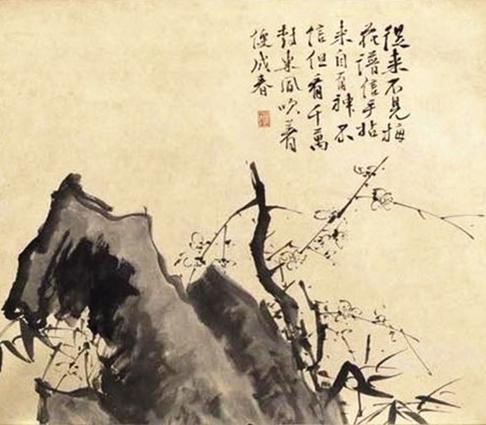 從来不見梅
花譜信手拈
来自有神不
信但看千萬
樹東風吹着
便成春